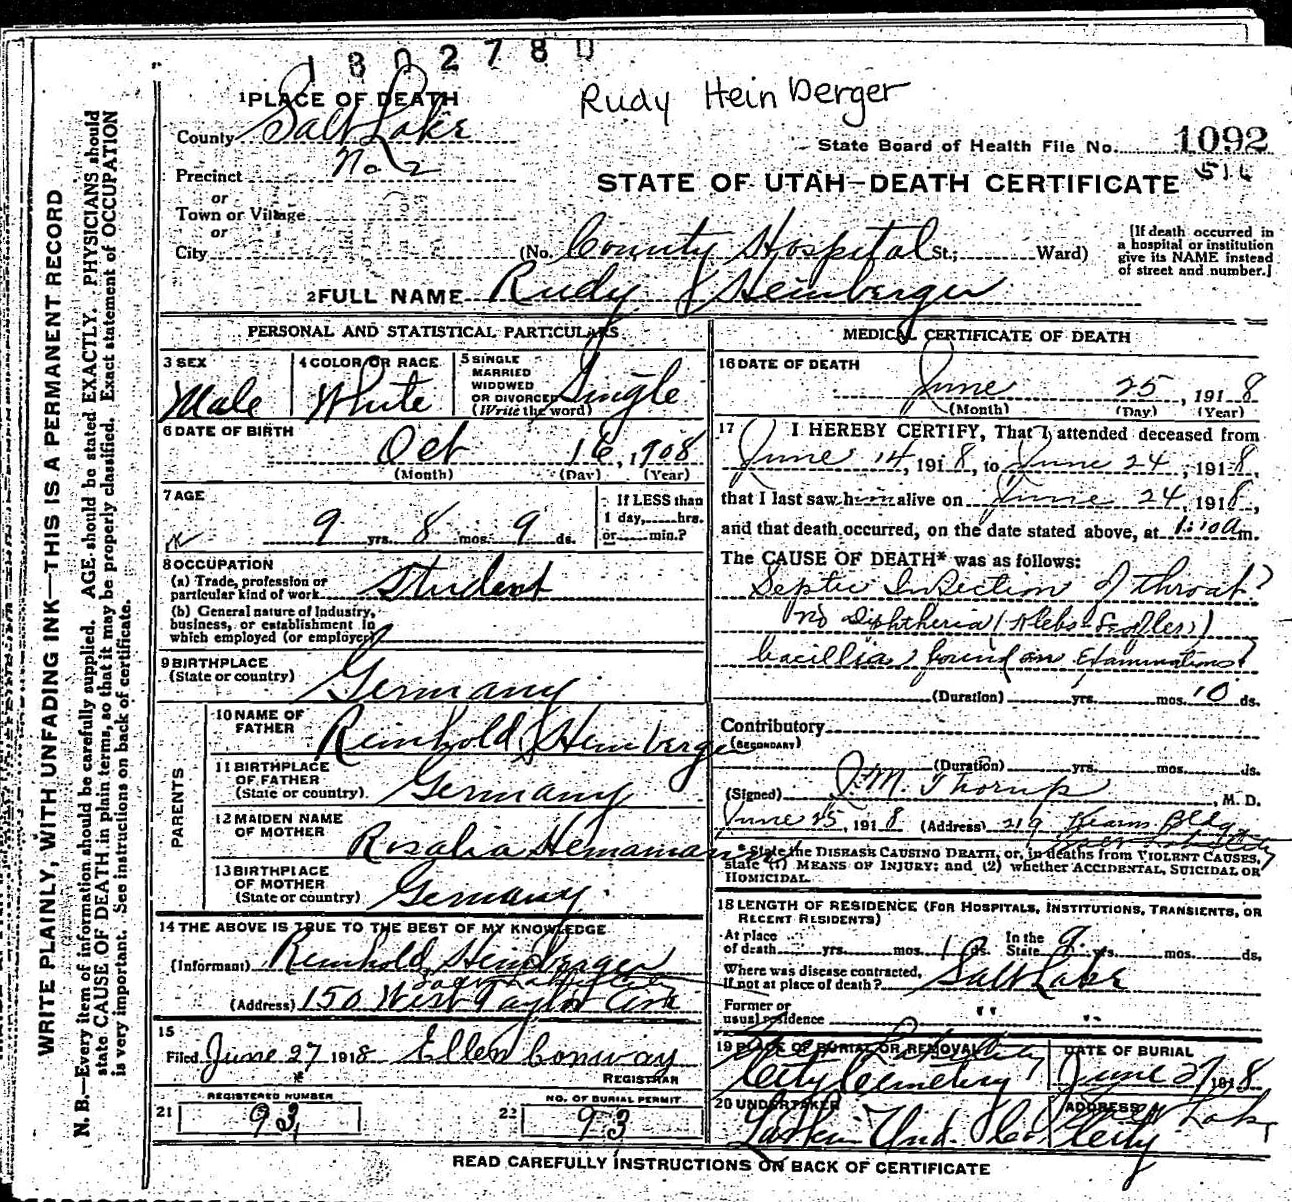 1802780
Rudy Heinberger
1 PLACE OF DEATH
County Salt Lake
State Board of Health File No. 1092
Precinct No 2
516
STATE OF UTAH—DEATH CERTIFICATE
or
Town or Village
or
City
(No. County Hospital St.; Ward)
[If death occurred in a hospital or institution give its NAME instead of street and number.]
2 FULL NAME Rudy J Heinberger
PERSONAL AND STATISTICAL PARTICULARS
3 SEX
Male
4 COLOR OR RACE
White
5 SINGLE
MARRIED
WIDOWED
OR DIVORCED
(Write the word)
Single
6 DATE OF BIRTH
Oct 16, 1908
(Month) (Day) (Year)
7 AGE
9 yrs. 8 mos. 9 ds.
If LESS than
1 day, hrs.
or min.?
8 OCCUPATION
(a) Trade, profession or
particular kind of work Student
(b) General nature of Industry,
business, or establishment in
which employed (or employer)
9 BIRTHPLACE
(State or country) Germany
PARENTS
10 NAME OF
FATHER Reinhold J Heinberger
11 BIRTHPLACE
OF FATHER
(State or country). Germany
12 MAIDEN NAME
OF MOTHER Rosalia
13 BIRTHPLACE
OF MOTHER
(State or country) Germany.
14 THE ABOVE IS TRUE TO THE BEST OF MY KNOWLEDGE
(Informant) Reinhold Heinberger
(Address) 150 West Taylor
15
Filed June 27 1918 Ellen Conway
REGISTRAR
21 REGISTERED NUMBER
93
22 NO. OF BURIAL PERMIT
93
MEDICAL CERTIFICATE OF DEATH
16 DATE OF DEATH
June 25, 1918
(Month) (Day) (Year)
17 I HEREBY CERTIFY, That I attended deceased from
June 14, 1918, to June 24, 1918,
that I last saw him alive on June 24, 1918,
and that death occurred, on the date stated above, at 1:10 a m.
The CAUSE OF DEATH* was as follows:
Septic Infection of throat?
No Diphtheria (Klebs-Loeffler)
bacillia found on Examinations?
(Duration) yrs. mos. 10 ds.
Contributory
(SECONDARY)
(Duration) yrs. mos. ds.
(Signed) J.M. Thorup, M. D.
June 25, 1918 (Address) 219 Kearns Bldg
* State the DISEASE CAUSING DEATH, or, in deaths from VIOLENT CAUSES,
state (1) MEANS OF INJURY; and (2) whether ACCIDENTAL, SUICIDAL OR
HOMICIDAL.
18 LENGTH OF RESIDENCE (FOR HOSPITALS, INSTITUTIONS, TRANSIENTS, OR
RECENT RESIDENTS)
At place
of death yrs. mos. ds. In the State 9 yrs. mos. ds.
Where was disease contracted,
if not at place of death? Salt Lake
Former or
usual residence " "
19 PLACE OF BURIAL OR REMOVAL
City Cemetery
DATE OF BURIAL
June 27 1918
20 UNDERTAKER
Larkin Und. Co
ADDRESS
Salt Lake
City
READ CAREFULLY INSTRUCTIONS ON BACK OF CERTIFICATE
WRITE PLAINLY, WITH UNFADING INK—THIS IS A PERMANENT RECORD
N. B.—Every item of information should be carefully supplied. AGE should be stated EXACTLY. PHYSICIANS should
state CAUSE OF DEATH in plain terms, so that it may be properly classified. Exact statement of OCCUPATION
is very important. See instructions on back of certificate.